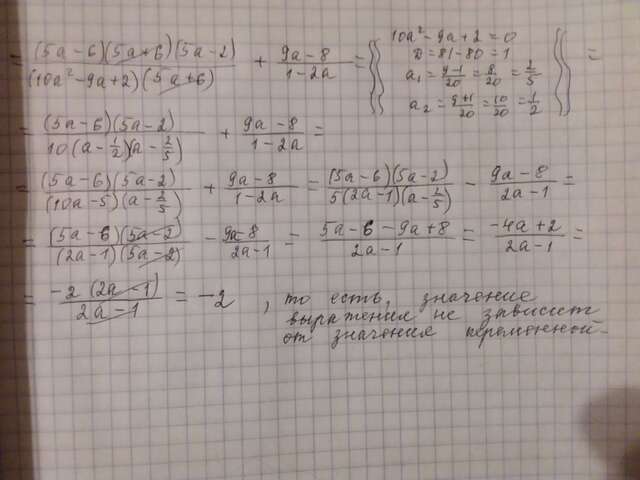 = (5a-6)(5a+6)(5a-2) / (10a²-9a+2)(5a+6) + 9a-8 / 1-2a = { 10a²-9a+2=0
D=81-80=1
a₁ = 9-1/20 = 8/20 = 2/5
a₂ = 9+1/20 = 10/20 = 1/2 } =
= (5a-6)(5a-2) / 10(a-1/2)(a-2/5) + 9a-8 / 1-2a =
= (5a-6)(5a-2) / (10a-5)(a-2/5) + 9a-8 / 1-2a = (5a-6)(5a-2) / 5(2a-1)(a-2/5) - 9a-8 / 2a-1 =
= (5a-6)(5a-2) / (2a-1)(5a-2) - 9a-8 / 2a-1 = 5a-6-9a+8 / 2a-1 = -4a+2 / 2a-1 =
= -2(2a-1) / 2a-1 = -2, то есть, значение
выражения не зависит
от значения переменной.